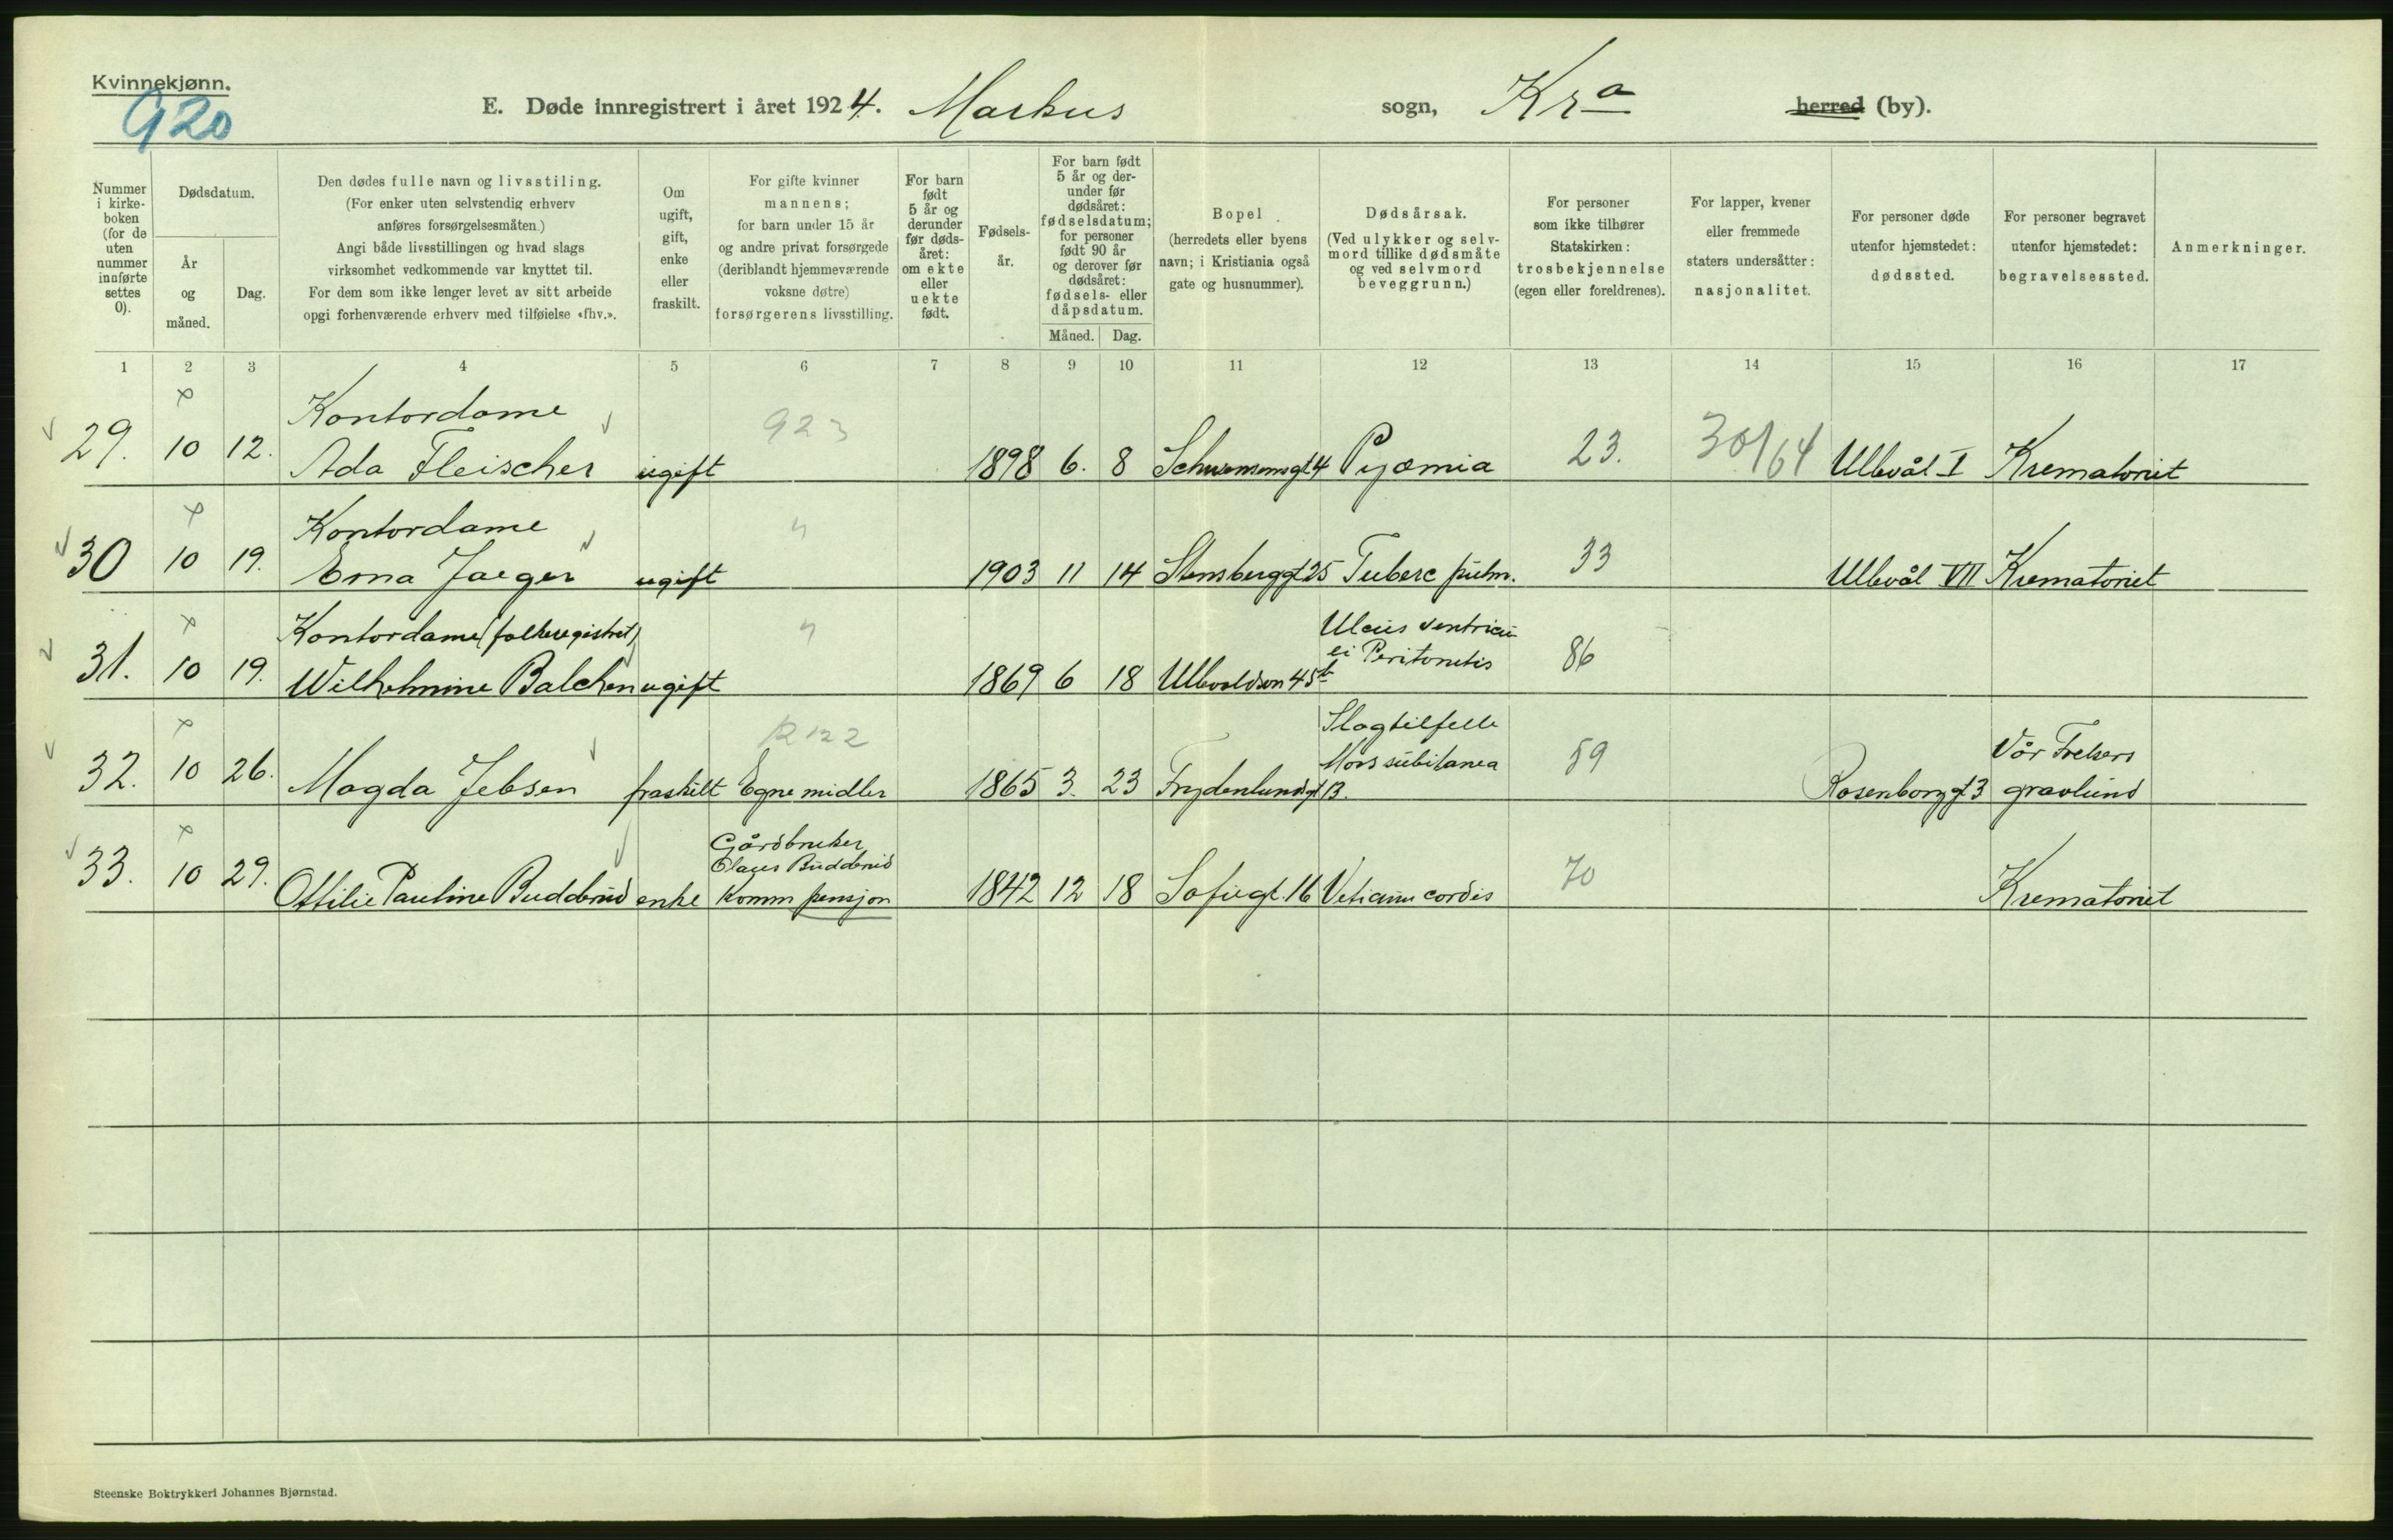 Kvinnekjønn.
920
E. Døde innregistrert i året 1924. Markus sogn, Kra herred (by).
Nummer i kirkeboken (for de uten nummer innførte settes 0).
Dødsdatum.
År og måned.
Dag.
Den dødes fulle navn og livsstiling.
(For enker uten selvstendig erhverv
anføres forsørgelsesmåten.)
Angi både livsstillingen og hvad slags
virksomhet vedkommende var knyttet til.
For dem som ikke lenger levet av sitt arbeide
opgi forhenværende erhverv med tilføielse «fhv.».
Om ugift, gift, enke eller fraskilt.
For gifte kvinner
mannens;
for barn under 15 år
og andre privat forsørgede
(deriblandt hjemmeværende
voksne døtre)
forsørgerens livsstilling.
For barn født 5 år og derunder før dødsåret: om ekte eller uekte født.
Fødselsår.
For barn født 5 år og derunder før dødsåret: fødselsdatum; for personer født 90 år og derover før dødsåret: fødsels- eller dåpsdatum.
Måned. Dag.
Bopel
(herredets eller byens
navn; i Kristiania også
gate og husnummer).
Dødsårsak.
(Ved ulykker og selvmord tillike dødsmåte og ved selvmord beveggrunn.)
For personer
som ikke tilhører
Statskirken:
trosbekjennelse
(egen eller foreldrenes).
For lapper, kvener
eller fremmede
staters undersåtter:
nasjonalitet.
For personer døde
utenfor hjemstedet:
dødssted.
For personer begravet
utenfor hjemstedet:
begravelsessted.
Anmerkninger.
1 2 3 4 5 6 7 8 9 10 11 12 13 14 15 16 17
Kontordame 923
29. 10 12. Ada Fleischer ugift 1898 6. 8 Schwensensgt 4 Pyæmia 23. 30/64 Ullevål I Krematoriet
Kontordame "
30 10 19. Erna Jaeger ugift 1903 11 14 Stensberggt 25 Tuberc pulm. 33 Ullevål VII Krematoriet
Kontordame (folkeregistret) " Ulcus ventriculi
ei Peritonitis
31. 10 19. Wilhelmine Balchen ugift 1869 6 18 Ullevoldsvn 45b 86
R122 Slagtilfelle
Mors subitanea Vår Frelsers
32. 10 26. Magda Jebsen fraskilt Egne midler 1865 3. 23 Frydenlundsgt 13. 59 Rosenborggt 3 gravlund
Gårdbruker
Olaus Budderud
33. 10 29. Ottilie Pauline Budderud enke Komm pensjon 1842 12 18 Sofiegt. 16 Vetium cordis 70 Krematoriet
Steenske Boktrykkeri Johannes Bjørnstad.